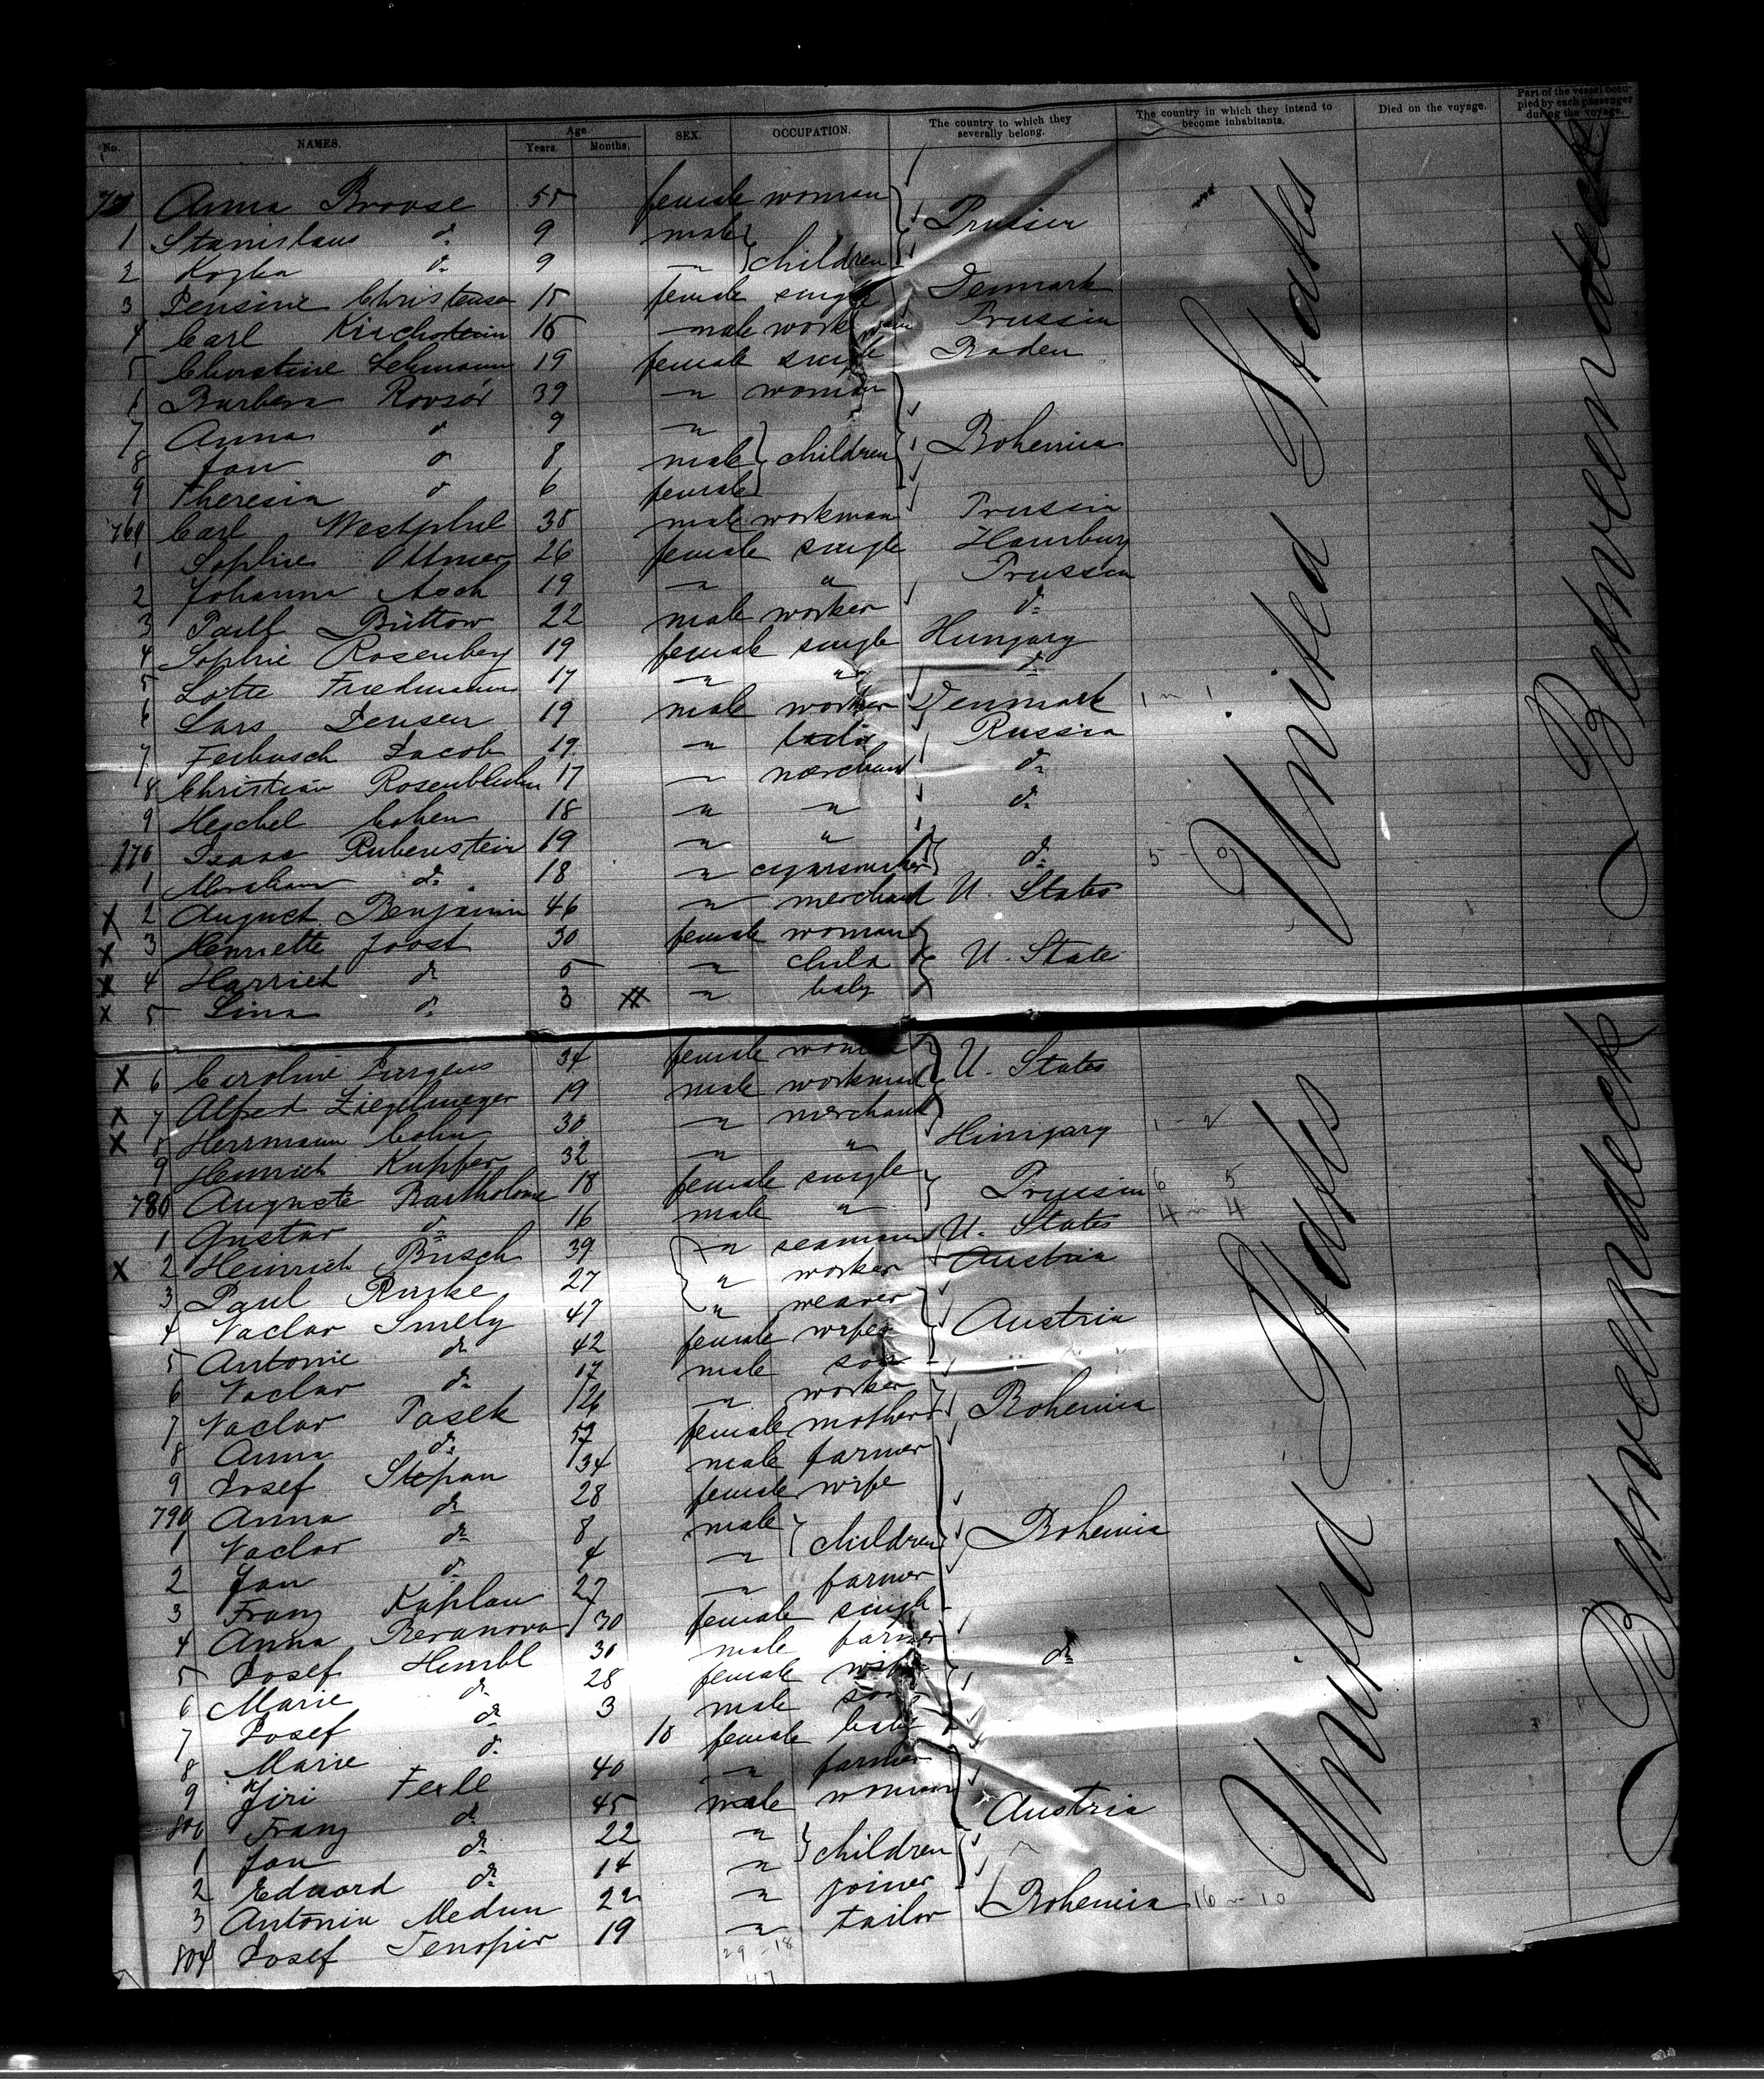 No. NAMES. Age Years. Months. SEX. OCCUPATION. The country to which they severally belong. The country in which they intend to become inhabitants. Died on the voyage. Part of the vessel occupied by each passenger during the voyage.
Anna 55 female woman
1 Stanislaus do 9 male Prussia
2 do 9 " children
3 Christensen 15 female single Denmark
4 Carl 16 male workman Prussia
5 Christine Lehmann 19 female single Baden
6 Barbera 39 " woman
7 Anna do 9 "
8 Jan do 8 male children Bohemia
9 Theresia do 6 female
760 Carl Westphal 38 male workman Prussia
1 Sophie Ottmer 26 female single Hamburg
2 Johanna Asch 19 " " Prussia
3 Büttow 22 male worker do
4 Sophie Rosenberg 19 female single Hungary
5 Lotte Friedmann 17 " " do
6 Lars Jensen 19 male worker Denmark 1 - 1
7 Jacob 19 " Russia
8 Christian 17 " merchant do
9 Heschel Cohen 18 " " do
770 Isaac Rubenstein 19 " "
1 Abraham do 18 " cigarmaker do 5 - 9
X 2 August Benjamin 46 " merchant U. States
X 3 Henriette Joost 30 female woman
X 4 Harriet do 5 " child U. State
X 5 Lina do 3 " baby
X 6 Caroline Jurgens 34 female woman U. States
X 7 Alfred Ziegelmeyer 19 male workman
X 8 Herrmann Cohn 30 " merchant
9 Heinrich Kupfer 32 " " Hungary 1 - 2
780 Auguste Bartholome 18 female single Prussia 6 5
1 Gustav do 16 male " 4 - 4
X 2 Heinrich Busch 39 " seaman U. States
3 Paul 27 " worker Austria
4 Vaclav Smely 47 " weaver
5 Antonie do 42 female wife Austria
6 Vaclav do 17 male son
7 Vaclav Pasek 26 " worker Bohemia
8 Anna do 57 female mother
9 Josef Stepan 34 male farmer
790 Anna do 28 female wife
1 Vaclav do 8 male children Bohemia
2 Jan do 4 "
3 Franz Kaplan 27 " farmer
4 Anna Beranova 30 female single
5 Josef 30 male farmer do
6 Marie do 28 female wife
7 Josef do 3 male son
8 Marie do 10 female baby
9 Jiri 40 " farmer
800 Franz do 45 male woman Austria
1 Jan do 22 " children
2 Eduard do 14 "
3 Antonin Medun 22 " joiner Bohemia 16 - 10
804 Josef Tenopir 19 " tailor
29 - 18
47
United States
United States
Betweendeck
Betweendeck